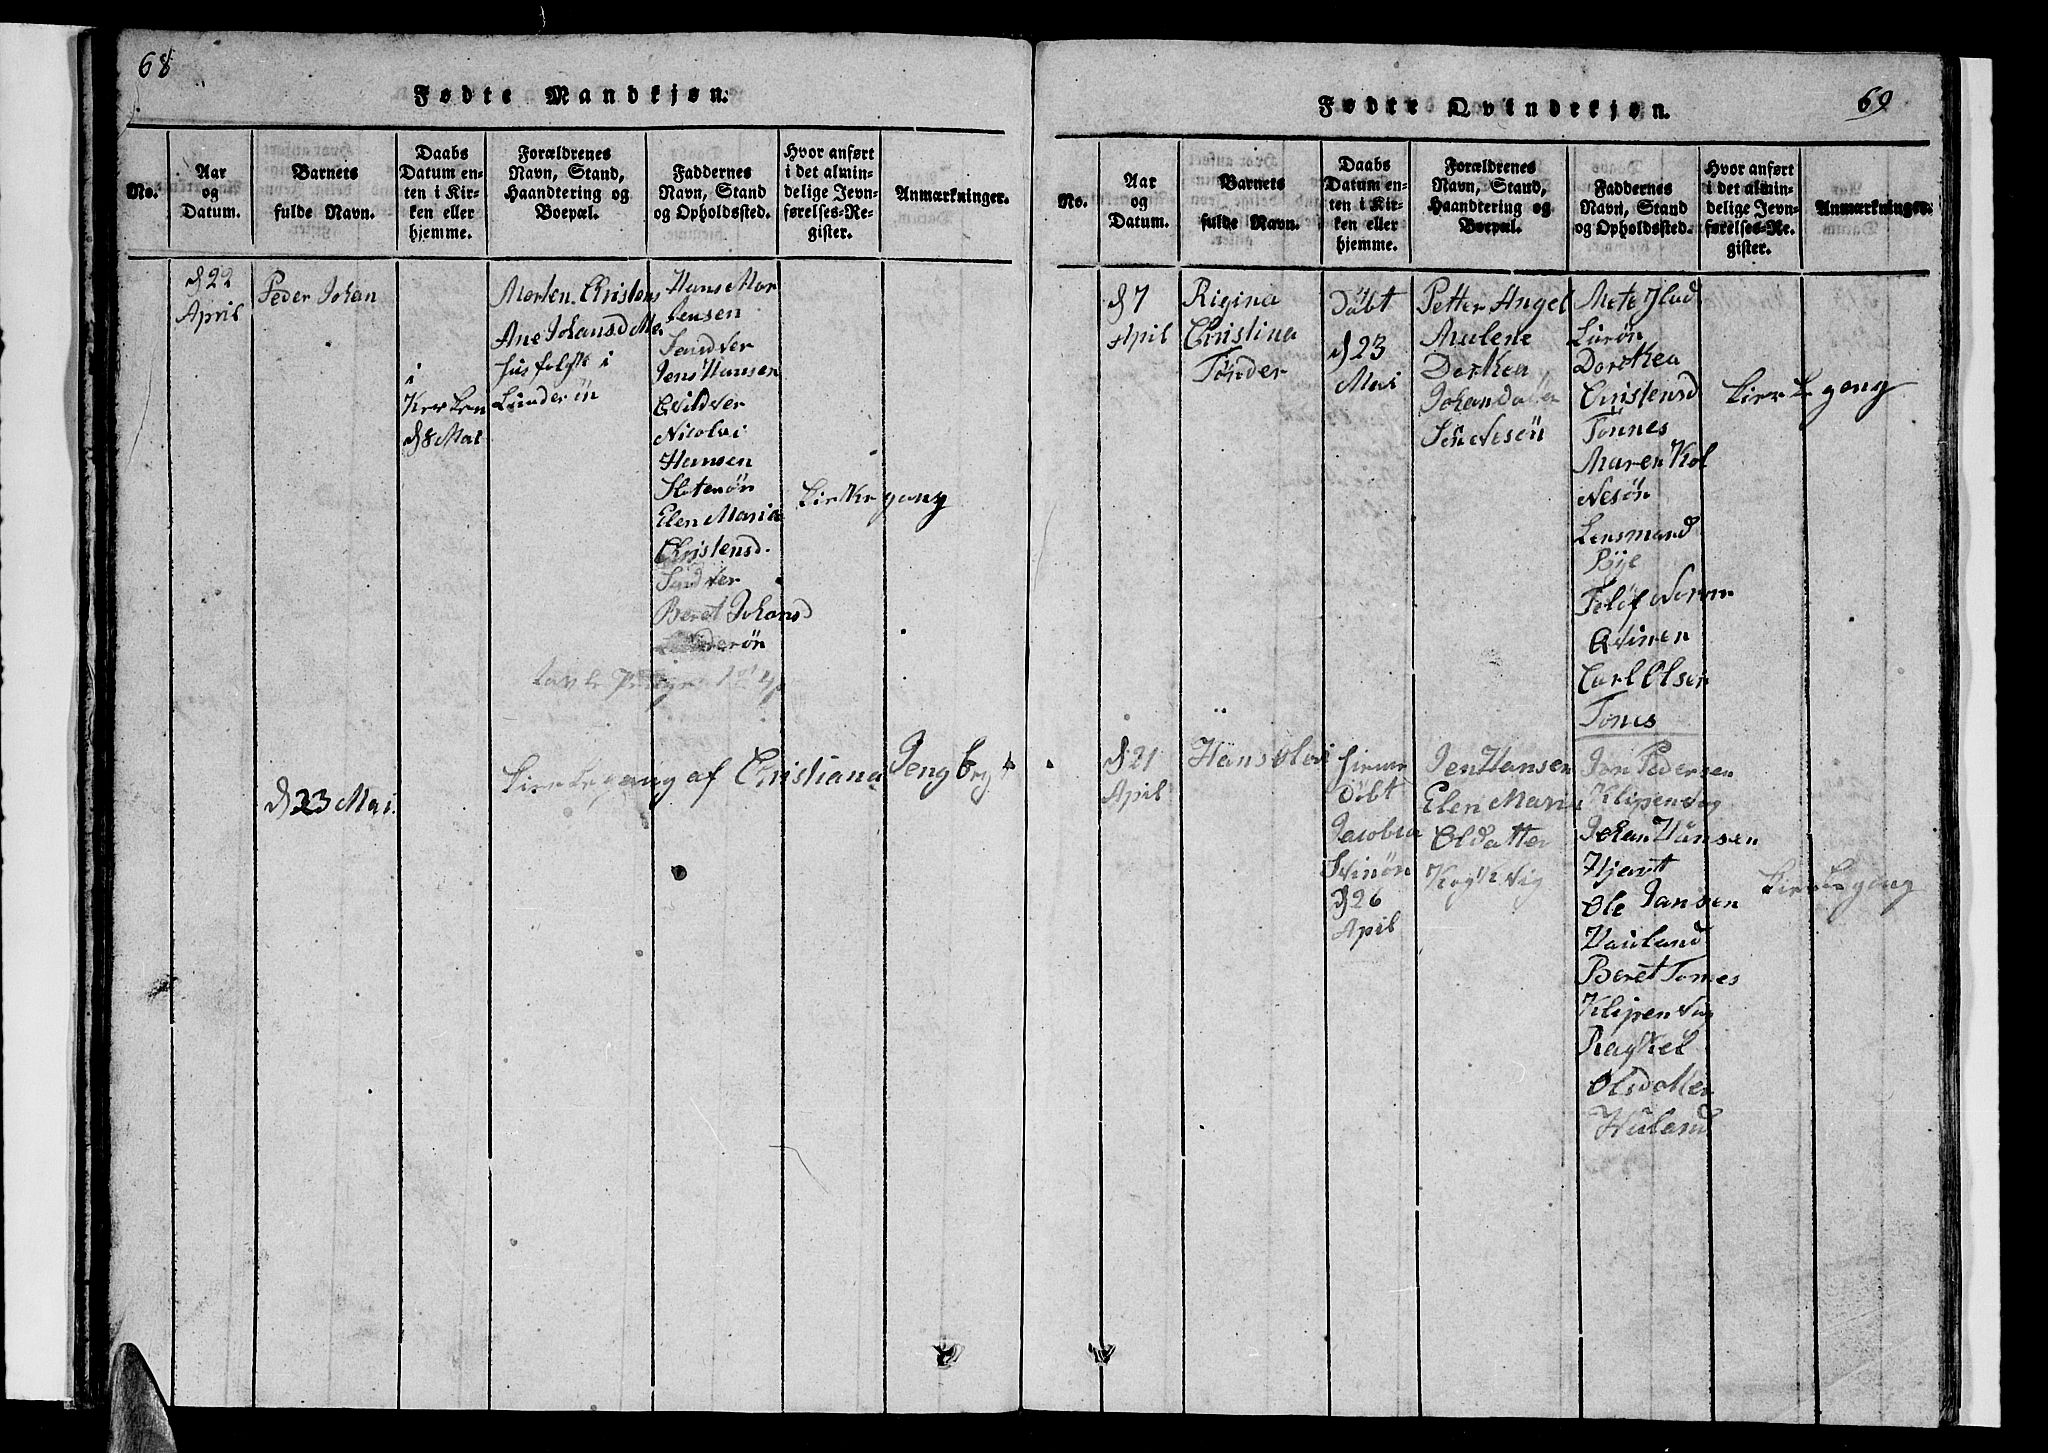 68
Fødte Mandkjøn.
No.
Aar
og
Datum.
Barnets
fulde Navn.
Daabs
Datum en-
ten i Kir-
ken eller
hjemme.
Forældrenes
Navn, Stand,
Haandtering og
Boepæl.
Faddernes
Navn, Stand
og Opholdssted.
Hvor anført
i det almin-
delige Jevn-
førelses-Re-
gister.
Anmærkninger.
d 22
April
Peder Johan
i
d 8 Mai
Morten Christens
Ane Johansdatter
i
Hans Mor
tensen
Sandver
Jens Hansen
Qvilvær
Nicolai
Hansen
Slotenøn
Elen Maria
Christensd.
Sandver
Beret Johansd
Kirkegang
d 23 Mai.
Kirkegang af Christiana
69
Fødte Qvindekjøn.
No.
Aar
og
Datum.
Barnets
fulde Navn.
Daabs
Datum en-
ten i Kir-
ken eller
hjemme.
Forældrenes
Navn, Stand,
Haandtering og
Boepæl.
Faddernes
Navn, Stand
og Opholdssted.
Hvor anført
i det almin-
delige Jevn-
førelses-Re-
gister.
Anmærkninger.
d 7
April
Rigina
Christina
Tønder
Døbt
d 23
Mai
Petter Angel
Malene
Dorthea
Mete
Lurøn
Dorothea
Christensd
Tonnes
Maren Kol
Nesøn
Lensmand
Bye
Qvinen
Carl Olsen
Tones
Kirkegang
d 21
April
døbt
Svinøn
d 26
April
Jen Hansen
Elen Maria
Oldatter
Jon Pedersen
Klipenvig
Johan Hansen
Hjart
Ole Jansen
Hauland
Beret Tomes
Klipenvig
Raghel
Olsdatter
Kirkegang